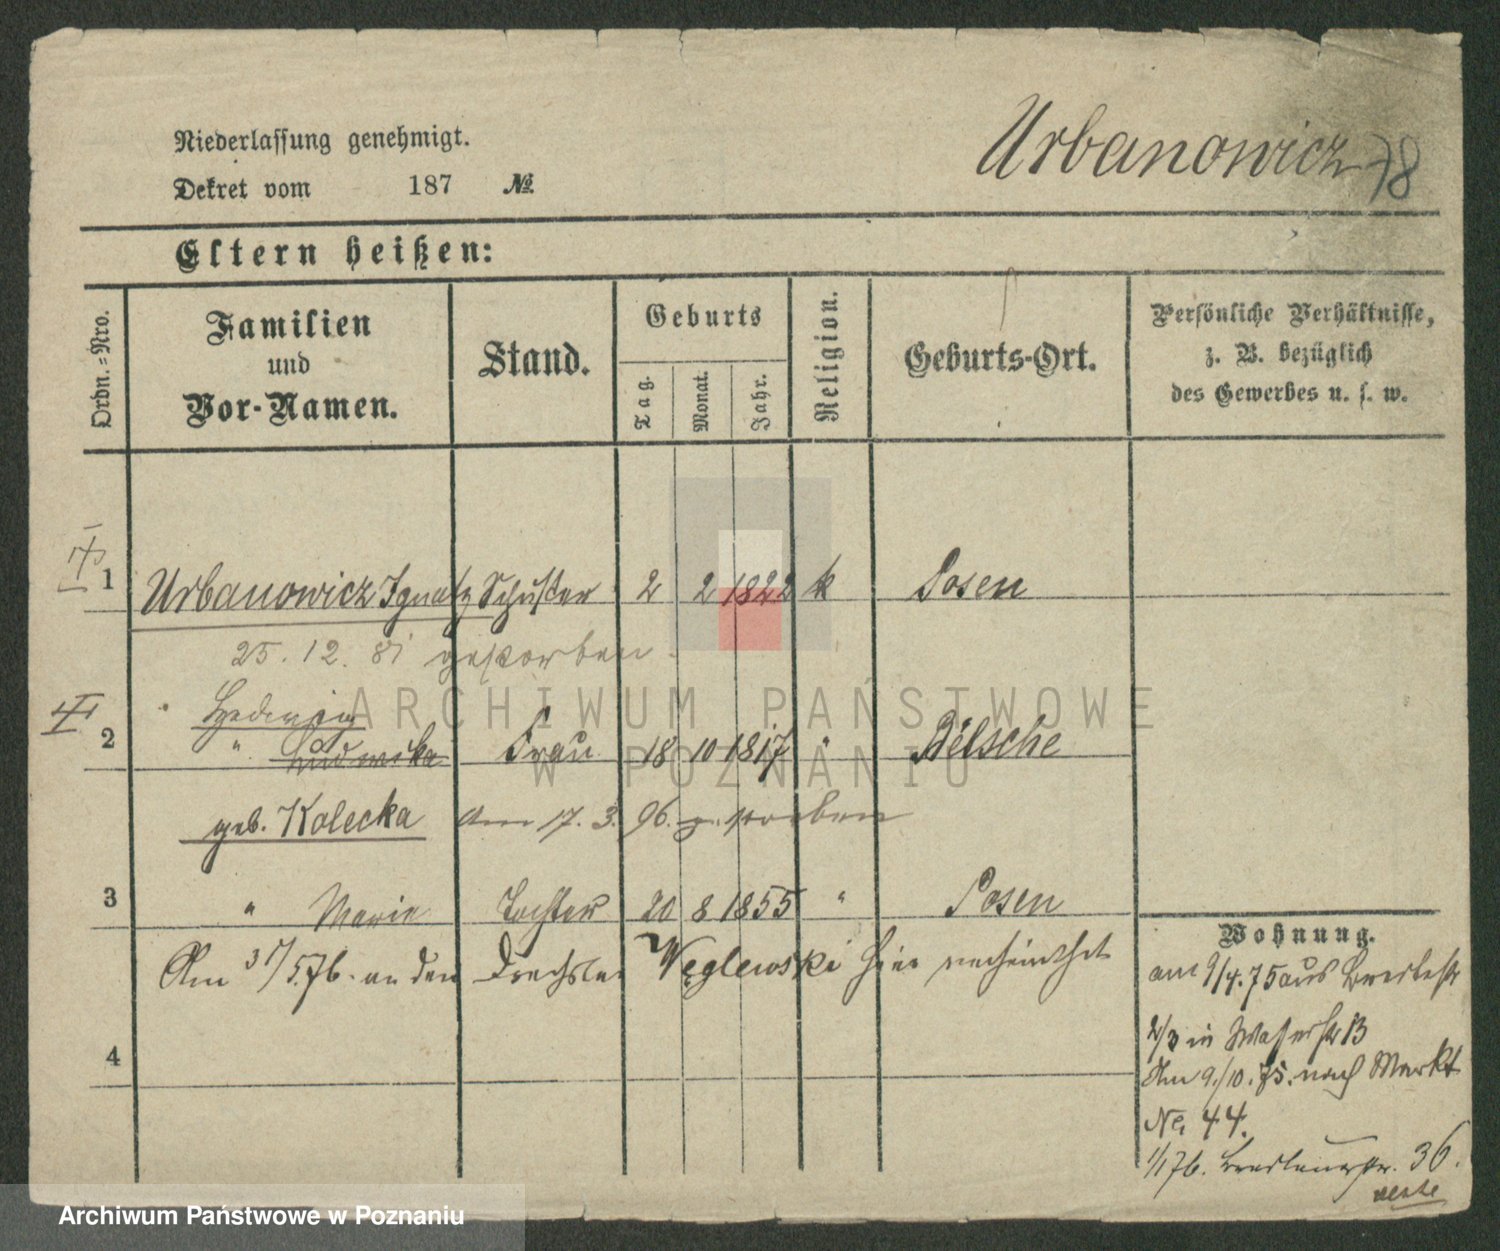 Niederlassung genehmigt.
Urbanowicz 78
Dekret vom 187 №
Eltern heißen:
Ordn.=Nro.
Familien
und
Vor-Namen.
Stand.
Geburts
Tag.
Monat.
Jahr.
Religion.
Geburts-Ort.
Persönliche Verhältnisse,
z. B. bezüglich
des Gewerbes u. s. w.
1 Urbanowicz Ignatz Schuster 2 2 1822 k Posen
25. 12. 81 gestorben
Hedwig
2 " Ludwika Frau 18 10 1817 " Belsche
geb. Kolecka am 17. 3. 96. gestorben
3 " Marie Tochter 20 8 1855 " Posen
Am 31/5.76. an den Drechsler Węglewski hier verheirathet
4
Wohnung.
am 9/4.75 aus Breslestr
2/3 in Wasserstr 13
Am 9./10.75. nach Markt
No. 44.
1/1 76. Breslauerstr. 36.
ARCHIWUM PAŃSTWOWE
W POZNANIU
Archiwum Państwowe w Poznaniu